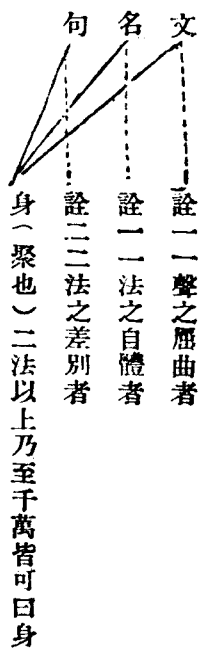 文 詮一一聲之屈曲者
名 詮一一法之自體者
句 詮二二法之差別者
身（聚也）二法以上乃至千萬皆可曰身